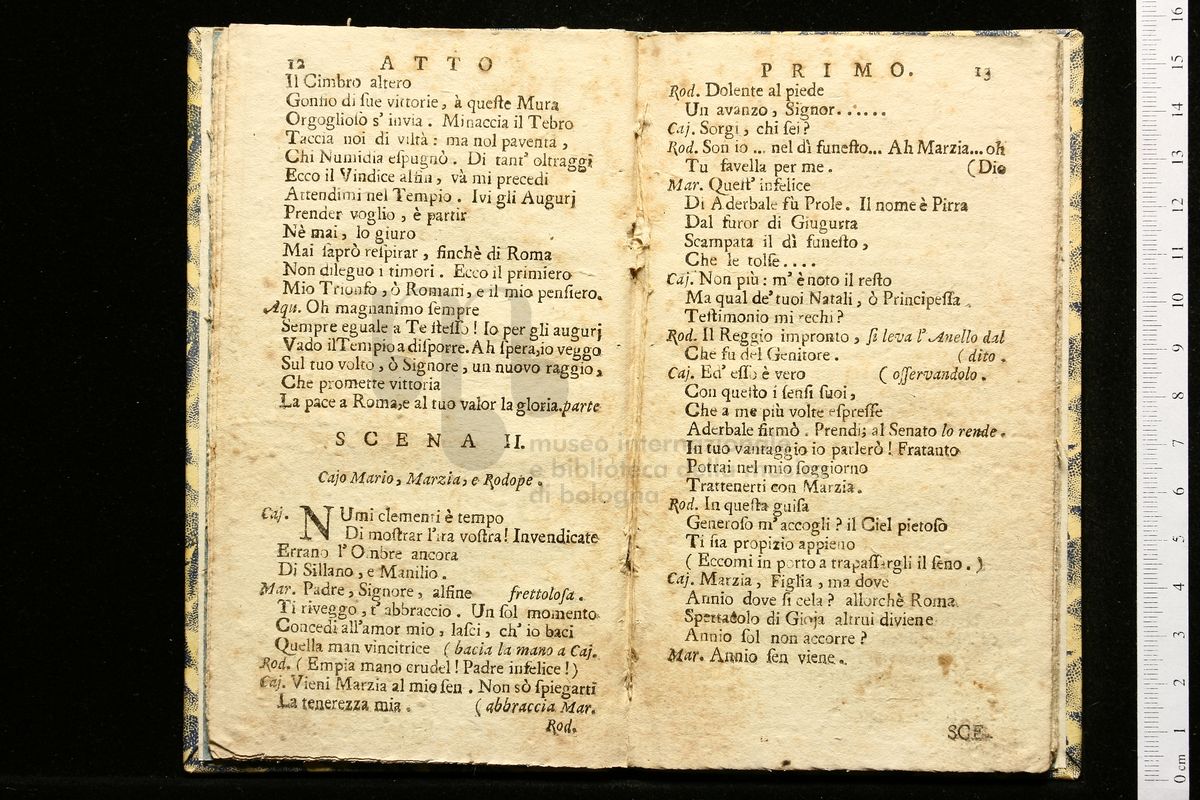 12 ATTO
Il Cimbro altero
Gonfio di ſue vittorie, à queſte Mura
Orgoglioſo s' invia. Minaccia il Tebro
Taccia noi di viltà: ma nol paventa,
Chi Numidia eſpugnò. Di tant' oltraggi
Ecco il Vindice alfin, và mi precedi
Attendimi nel Tempio. Ivi gli Augurj
Prender voglio, è partir
Nè mai, lo giuro
Mai ſaprò reſpirar, finchè di Roma
Non dileguo i timori. Ecco il primiero
Mio Trionfo, ò Romani, e il mio penſiero.
Aqu. Oh magnanimo ſempre
Sempre eguale a Te ſteſſo! Io per gli augurj
Vado il Tempio a diſporre. Ah ſpera, io veggo
Sul tuo volto, ò Signore, un nuovo raggio,
Che promette vittoria
La pace a Roma, e al tuo valor la gloria. parte
SCENA II.
Cajo Mario, Marzia, e Rodope.
Caj. NUmi clementi è tempo
Di moſtrar l'ira voſtra! Invendicate
Errano l' Ombre ancora
Di Sillano, e Manilio.
Mar. Padre, Signore, alfine frettoloſa.
Ti riveggo, t' abbraccio. Un ſol momento
Concedi all'amor mio, laſci, ch' io baci
Quella man vincitrice (bacia la mano a Caj.
Rod. (Empia mano crudel! Padre infelice!)
Caj. Vieni Marzia al mio ſen. Non sò ſpiegarti
La tenerezza mia. (abbraccia Mar.
Rod.
PRIMO. 13
Rod. Dolente al piede
Un avanzo, Signor......
Caj. Sorgi, chi ſei?
Rod. Son io ... nel dì funeſto... Ah Marzia... oh
Tu favella per me. (Dio
Mar. Queſt' infelice
Di Aderbale fù Prole. Il nome è Pirra
Dal furor di Giugurta
Scampata il dì funeſto,
Che le tolſe....
Caj. Non più: m' è noto il reſto
Ma qual de' tuoi Natali, ò Principeſſa
Teſtimonio mi rechi?
Rod. Il Reggio impronto, ſi leva l' Anello dal
Che fu del Genitore. (dito.
Caj. Ed' eſſo è vero (oſſervandolo.
Con queſto i ſenſi ſuoi,
Che a me più volte eſpreſſe
Aderbale firmò. Prendi; al Senato lo rende.
In tuo vantaggio io parlerò! Fratanto
Potrai nel mio ſoggiorno
Trattenerti con Marzia.
Rod. In queſta guiſa
Generoſo m' accogli? il Ciel pietoſo
Ti ſia propizio appieno
(Eccomi in porto a trapaſſargli il ſeno.)
Caj. Marzia, Figlia, ma dove
Annio dove ſi cela? allorchè Roma
Spettacolo di Gioja altrui diviene
Annio ſol non accorre?
Mar. Annio ſen viene.
SCE.
museo internazionale
e biblioteca della
di bologna
0 cm 1 2 3 4 5 6 7 8 9 10 11 12 13 14 15 16